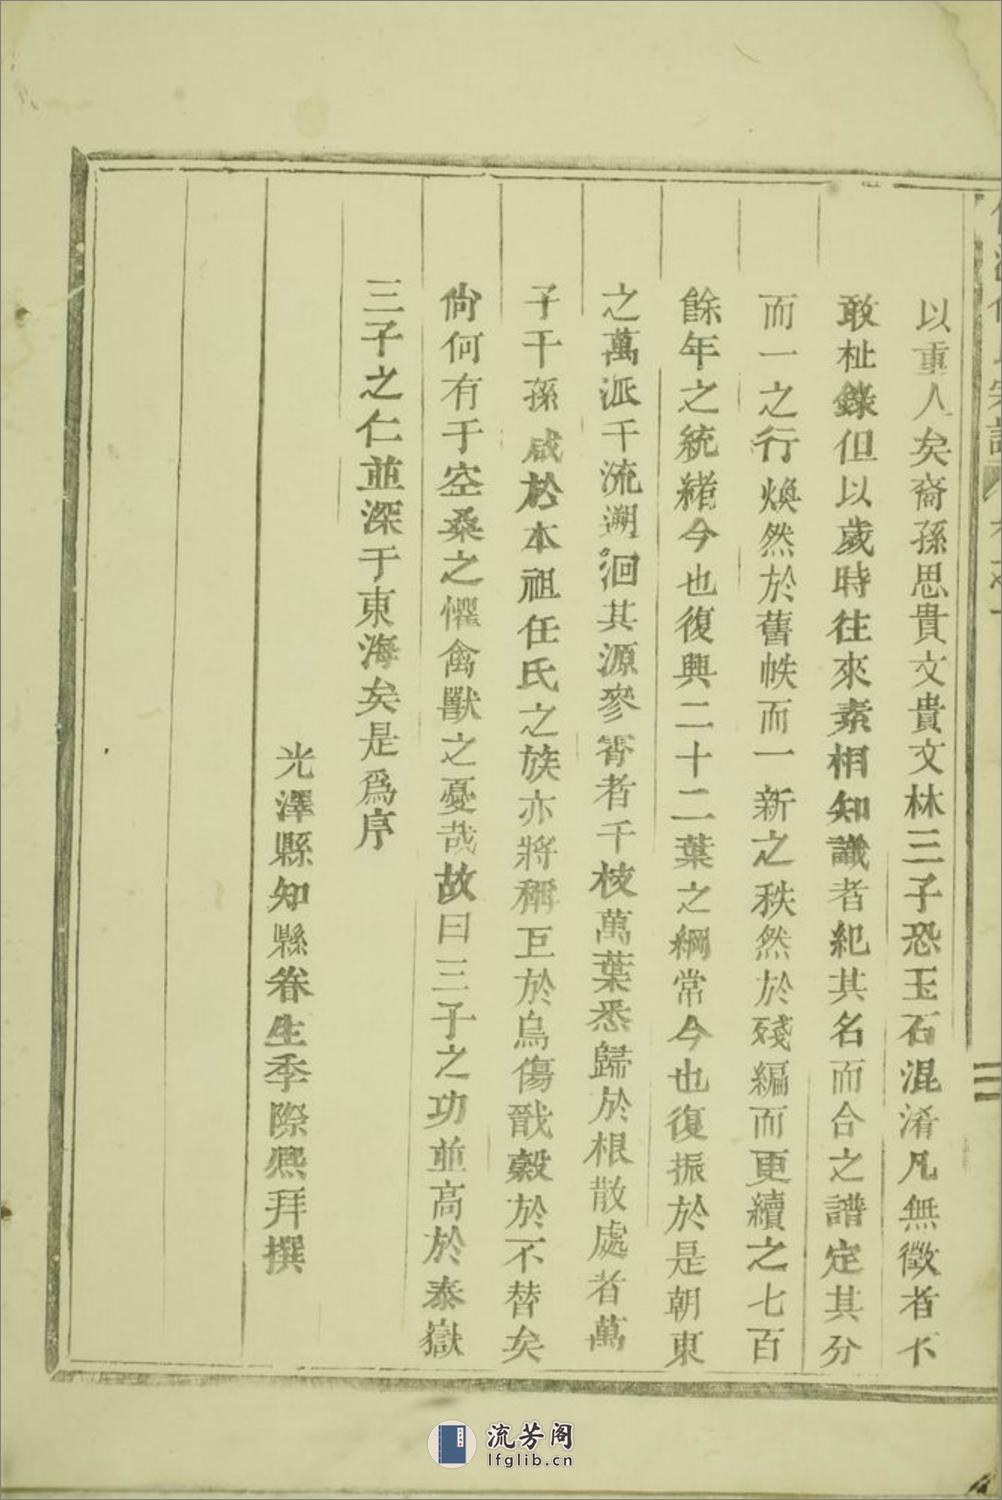 以重人矣裔孫思貴文貴文林三子恐玉石混淆凡無徵者不
敢杜錄但以歲時往來素相知識者紀其名而合之譜定其分
而一之行煥然於舊帙而一新之秩然於殘編而更續之七百
餘年之統緒今也復興二十二葉之綱常今也復振於是朝東
之萬派千流溯洄其源參霄者千枝萬葉悉歸於根散處者萬
子千孫咸於本祖任氏之族亦將稱巨於烏傷戩穀於不替矣
尙何有于空桑之懼禽獸之憂哉故曰三子之功並高於泰嶽
三子之仁並深于東海矣是爲序
光澤縣知縣眷生季際熙拜撰
流芳阁
lfglib.cn